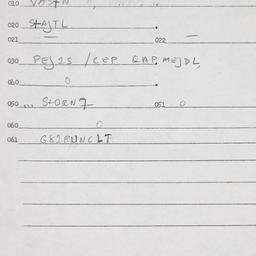 010 VASTN
020 STAJTL
021 — 022 —
030 PEJ2S / CEP QAP. MEJDL,
040 0
050 ... STORN7 051 0
060 0
061 G82RUNCLT